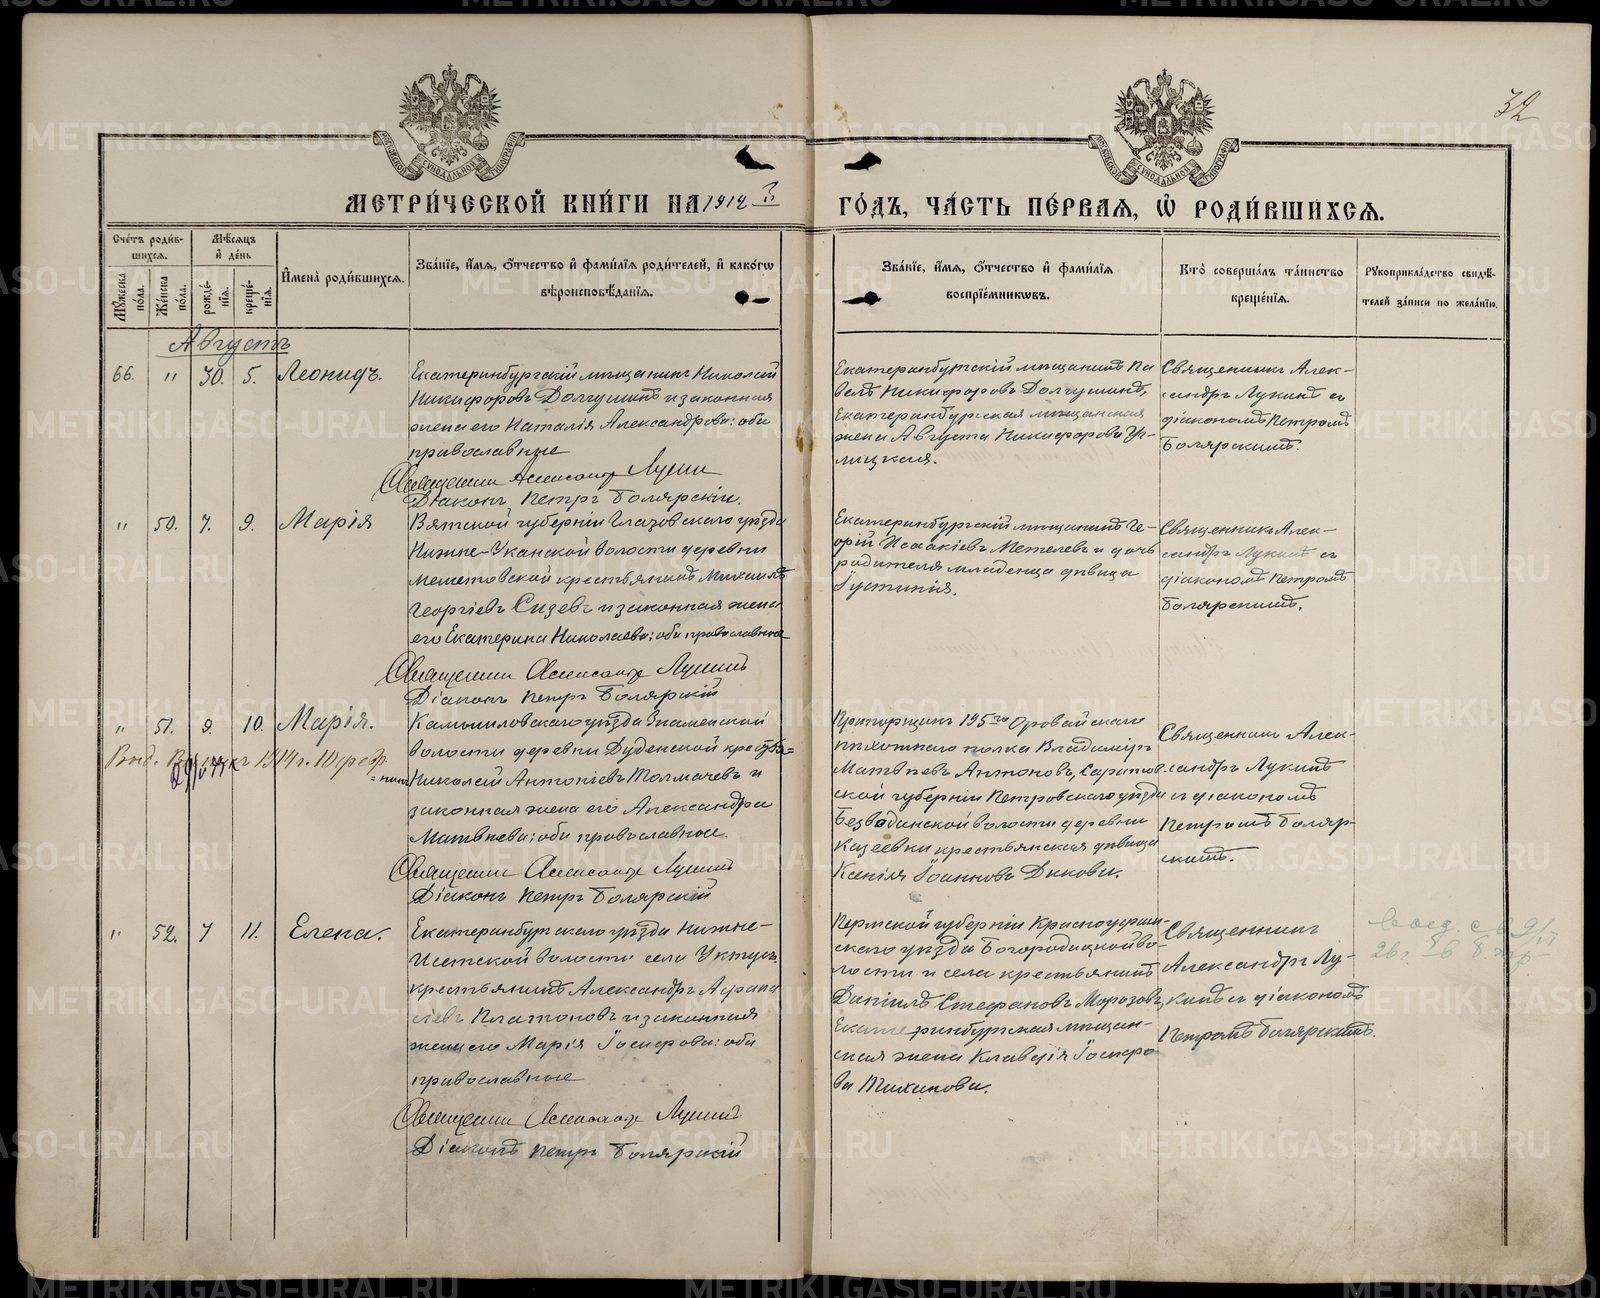 32
МЕТРИ́ЧЕСКОЙ КНИ́ГИ НА 1912
ГО́ДЪ, ЧА́СТЬ ПЕ́РВАЯ, Ѡ҆ РОДИ́ВШИХСѦ.
Сче́тъ роди́в-
шихсѧ.
Мѣ́сѧцъ
и҆ де́нь
Мꙋ́жеска по́ла.
Же́нска по́ла.
рожде́-
нїѧ.
креще́-
нїѧ.
И҆мена̀ роди́вшихсѧ.
Зва́нїе, и҆́мѧ, ѻ҆́тчество и҆ фами́лїѧ роди́телей, и҆ како́гѡ
вѣроисповѣ́данїѧ.
Зва́нїе, и҆́мѧ, ѻ҆́тчество и҆ фами́лїѧ
воспрїе́мникѡвъ.
Кто̀ соверша́лъ та́инство
креще́нїѧ.
Рꙋкоприкла́дство свидѣ́-
телей за́писи по жела́нїю.
Августъ
66. " 30. 5. Леонидъ.
Екатеринбургскій мѣщанинъ Николай
Никифоровъ Долгушинъ и законная
жена его Наталія Александрова: оба
православные
Священникъ Александръ Лукинъ
Діаконъ Петръ Болярскій.
Екатеринбургскій мѣщанинъ Па
велъ Никифоровъ Долгушинъ,
Екатеринбургская мѣщанская
жена Августа Никифорова Уг-
лицкая.
Священникъ Алек-
сандръ Лукинъ съ
діакономъ Петромъ
Болярскимъ.
" 50. 7. 9. Марія
Вятской губерніи Глазовскаго уѣзда
Нижне-Уканской волости деревни
крестьянинъ Михаилъ
Георгіевъ Сизевъ и законная жена
его Екатерина Николаева; оба православные
Священникъ Александръ Лукинъ
Діаконъ Петръ Болярскій
Екатеринбургскій мѣщанинъ Ге-
оргій Исаакіевъ Метелевъ и дочь
родителя младенца дѣвица
Іустинія.
Священникъ Алек-
сандръ Лукинъ съ
діакономъ Петромъ
Болярскимъ.
" 51. 9. 10. Марія.
Выд. 1914 г. 10 февр.
Камышловскаго уѣзда Знаменской
волости деревни Дуденской крестья=
=нинъ Николай Антоніевъ Толмачевъ и
законная жена его Александра
Матвѣева; оба православные
Священникъ Александръ Лукинъ
Діаконъ Петръ Болярскій
Прапорщикъ 195го Оровайскаго
пѣхотнаго полка Владиміръ
Матвѣевъ Антоновъ, Саратов-
ской губерніи Петровскаго уѣзда
Безводинской волости деревни
Казеевки крестьянская дѣвица
Ксенія Іоаннова Дикова.
Священникъ Алек-
сандръ Лукинъ
съ діакономъ
Петромъ Боляр-
скимъ.
" 52. 7 11. Елена.
Екатеринбургскаго уѣзда Нижне-
Исетской волости села Уктуса
крестьянинъ Александръ Афана
сіевъ Платоновъ и законная
жена его Марія Іосифова: оба
православные
Священникъ Александръ Лукинъ
Діаконъ Петръ Болярскій
Пермской губерніи Красноуфим-
скаго уѣзда Богородицкой во-
лости и села крестьянинъ
Даніилъ Стефановъ Морозовъ,
Екатеринбургская мѣщан-
ская жена Клавдія Іосифо
ва Тиханова.
Священникъ
Александръ Лу-
кинъ съ діакономъ
Петромъ Болярскимъ.